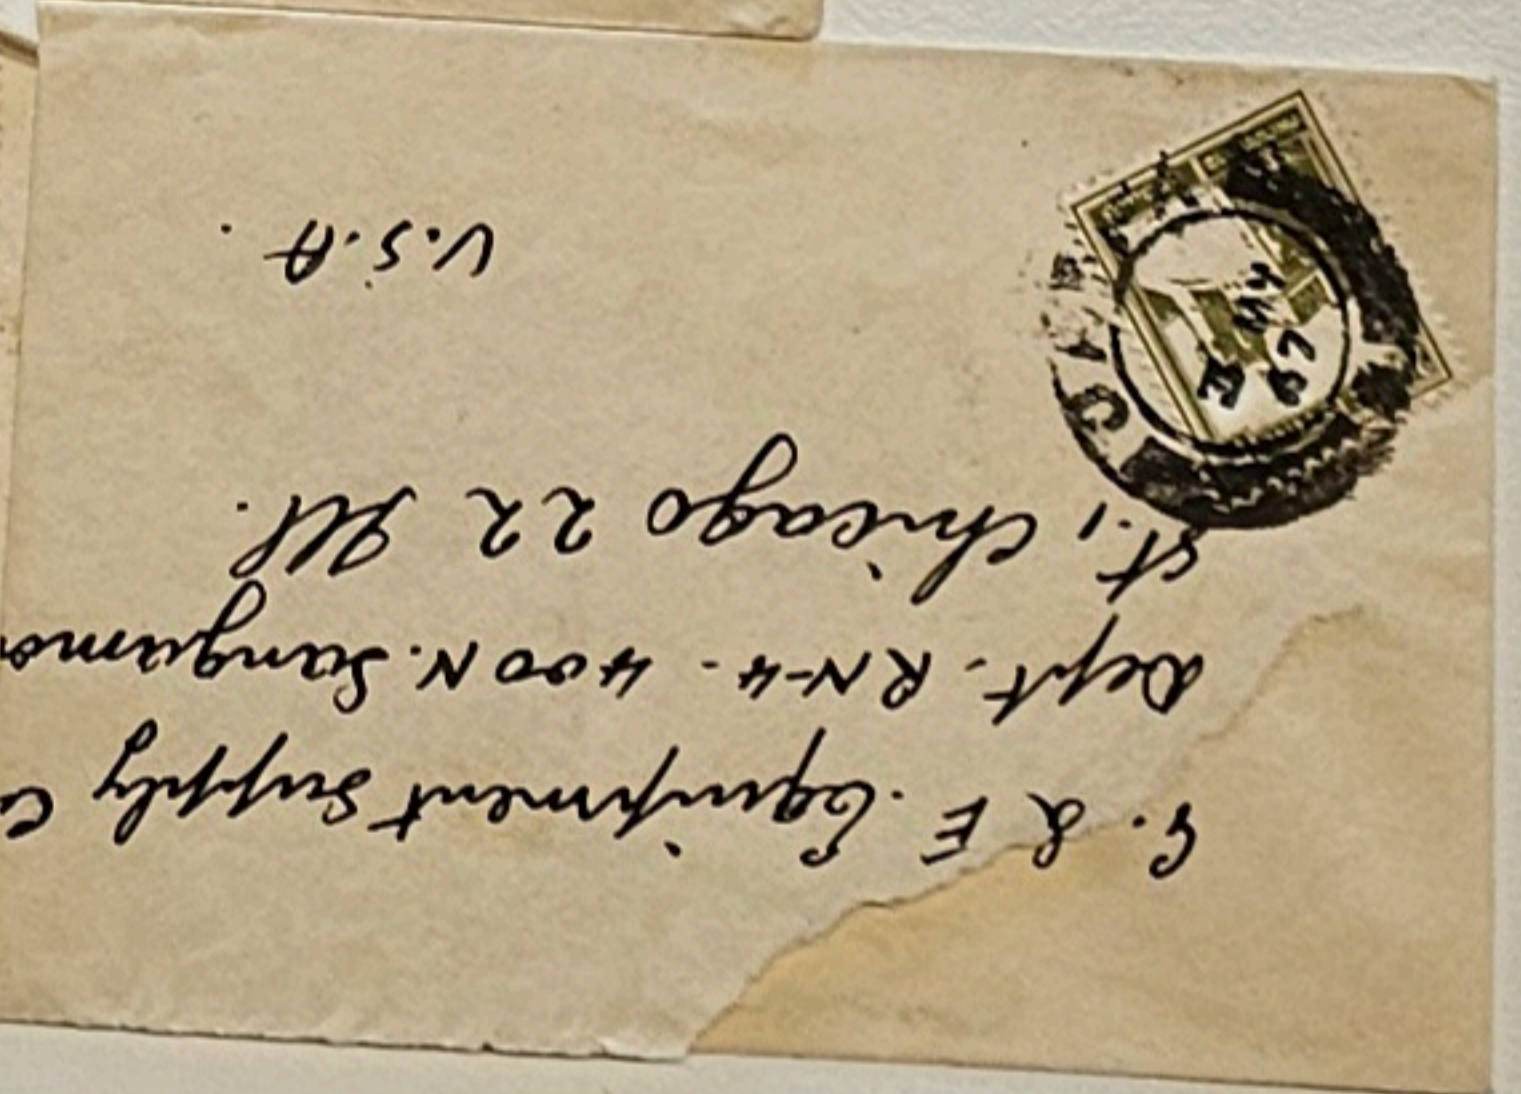 G. & E. Equipment Supply C
Dept. RN-4. 400 N. Sangamo
St., Chicago 22 Ill.
U.S.A.
MY
67